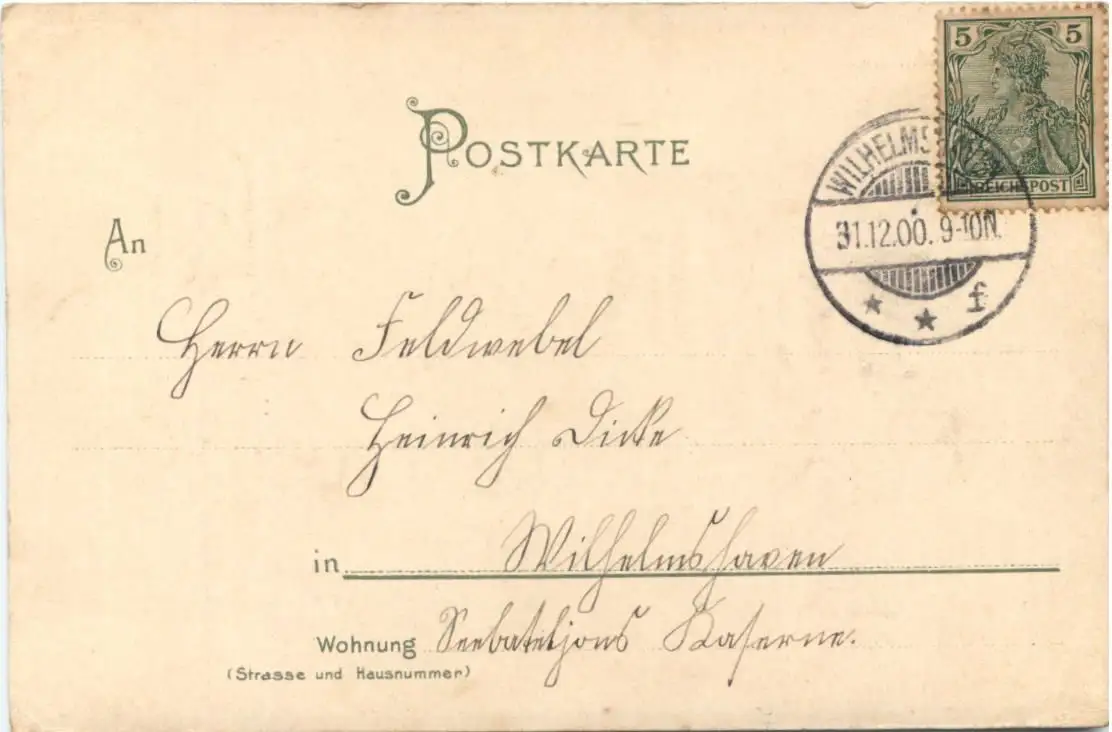 5 5
REICHSPOST
POSTKARTE
WILHELMS
31.12.00. 9-10N.
f
An
Herrn Feldwebel
Heinrich Dicke
in Wilhelmshaven
Wohnung Seebateljons Kaserne.
(Strasse und Hausnummer)